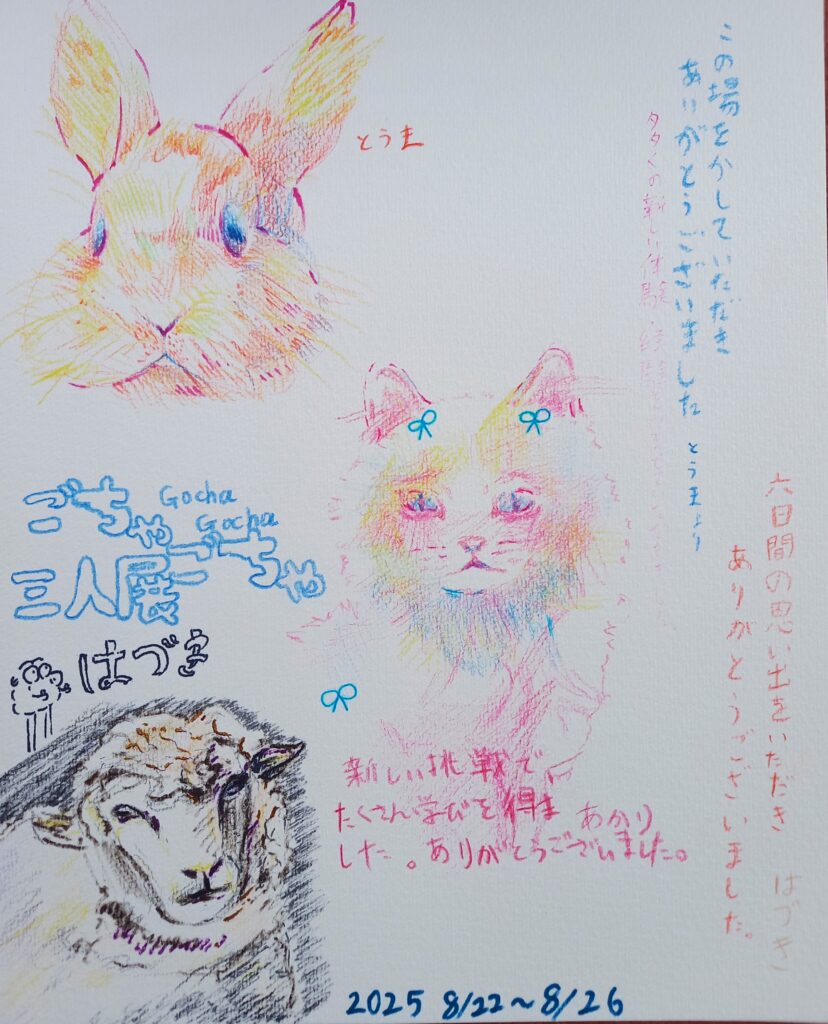 この場をかしていただき
ありがとうございました
とうまより
多くの新しい体験
とうま
六日間の思い出をいただき
ありがとうございました。
はづき
ごちゃごちゃ
Gocha
Gocha
三人展
はづき
新しい挑戦で、
たくさん学びを得ま
した。ありがとうございました。
あかり
2025 8/22~8/26